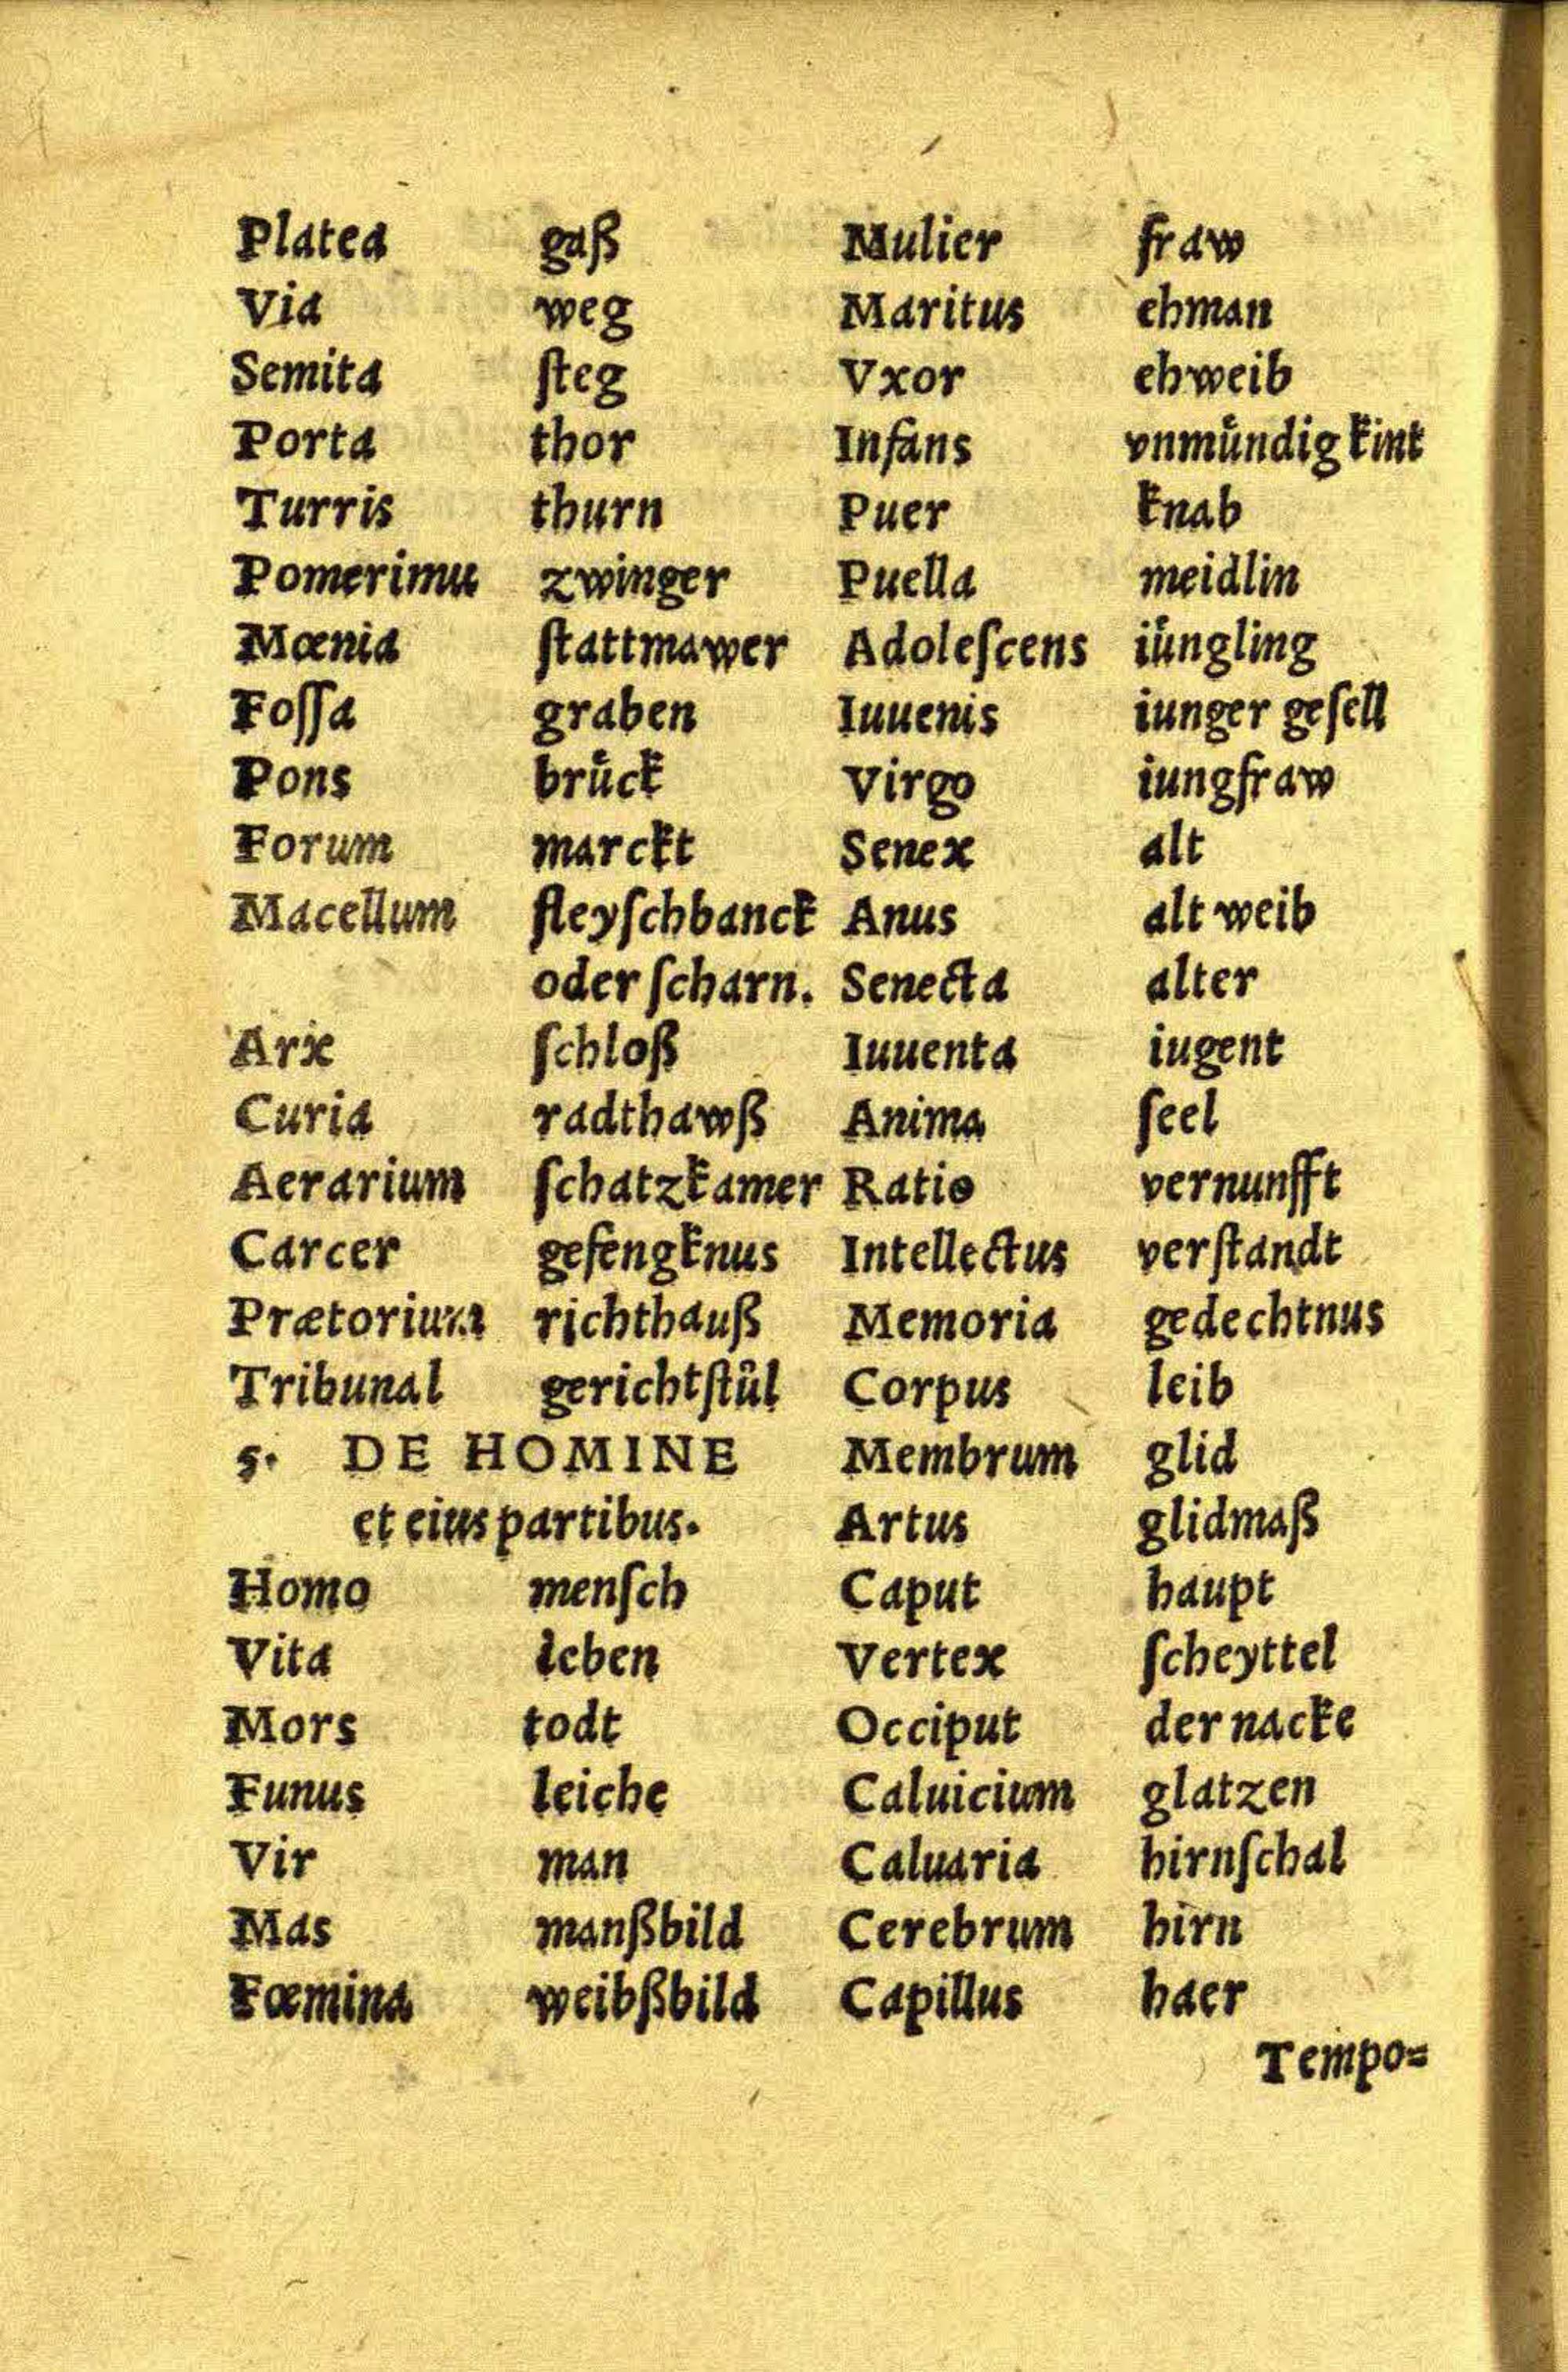 Platea gaß
Via weg
Semita ſteg
Porta thor
Turris thurn
Pomerimu zwinger
Mœnia ſtattmawer
Foſſa graben
Pons bruͤck
Forum marckt
Macellum fleyſchbanck
oder ſcharn.
Arx ſchloß
Curia radthawß
Aerarium ſchatzkamer
Carcer gefengknus
Prætorium richthauß
Tribunal gerichtſtuͤl
5. DE HOMINE
et eius partibus.
Homo menſch
Vita leben
Mors todt
Funus leiche
Vir man
Mas manßbild
Fœmina weibßbild
Mulier fraw
Maritus ehman
Vxor ehweib
Infans vnmuͤndig kint
Puer knab
Puella meidlin
Adoleſcens iuͤngling
Iuuenis iunger geſell
Virgo iungfraw
Senex alt
Anus alt weib
Senecta alter
Iuuenta iugent
Anima ſeel
Ratio vernunfft
Intellectus verſtandt
Memoria gedechtnus
Corpus leib
Membrum glid
Artus glidmaß
Caput haupt
Vertex ſcheyttel
Occiput der nacke
Caluicium glatzen
Caluaria hirnſchal
Cerebrum hirn
Capillus haer
Tempo=